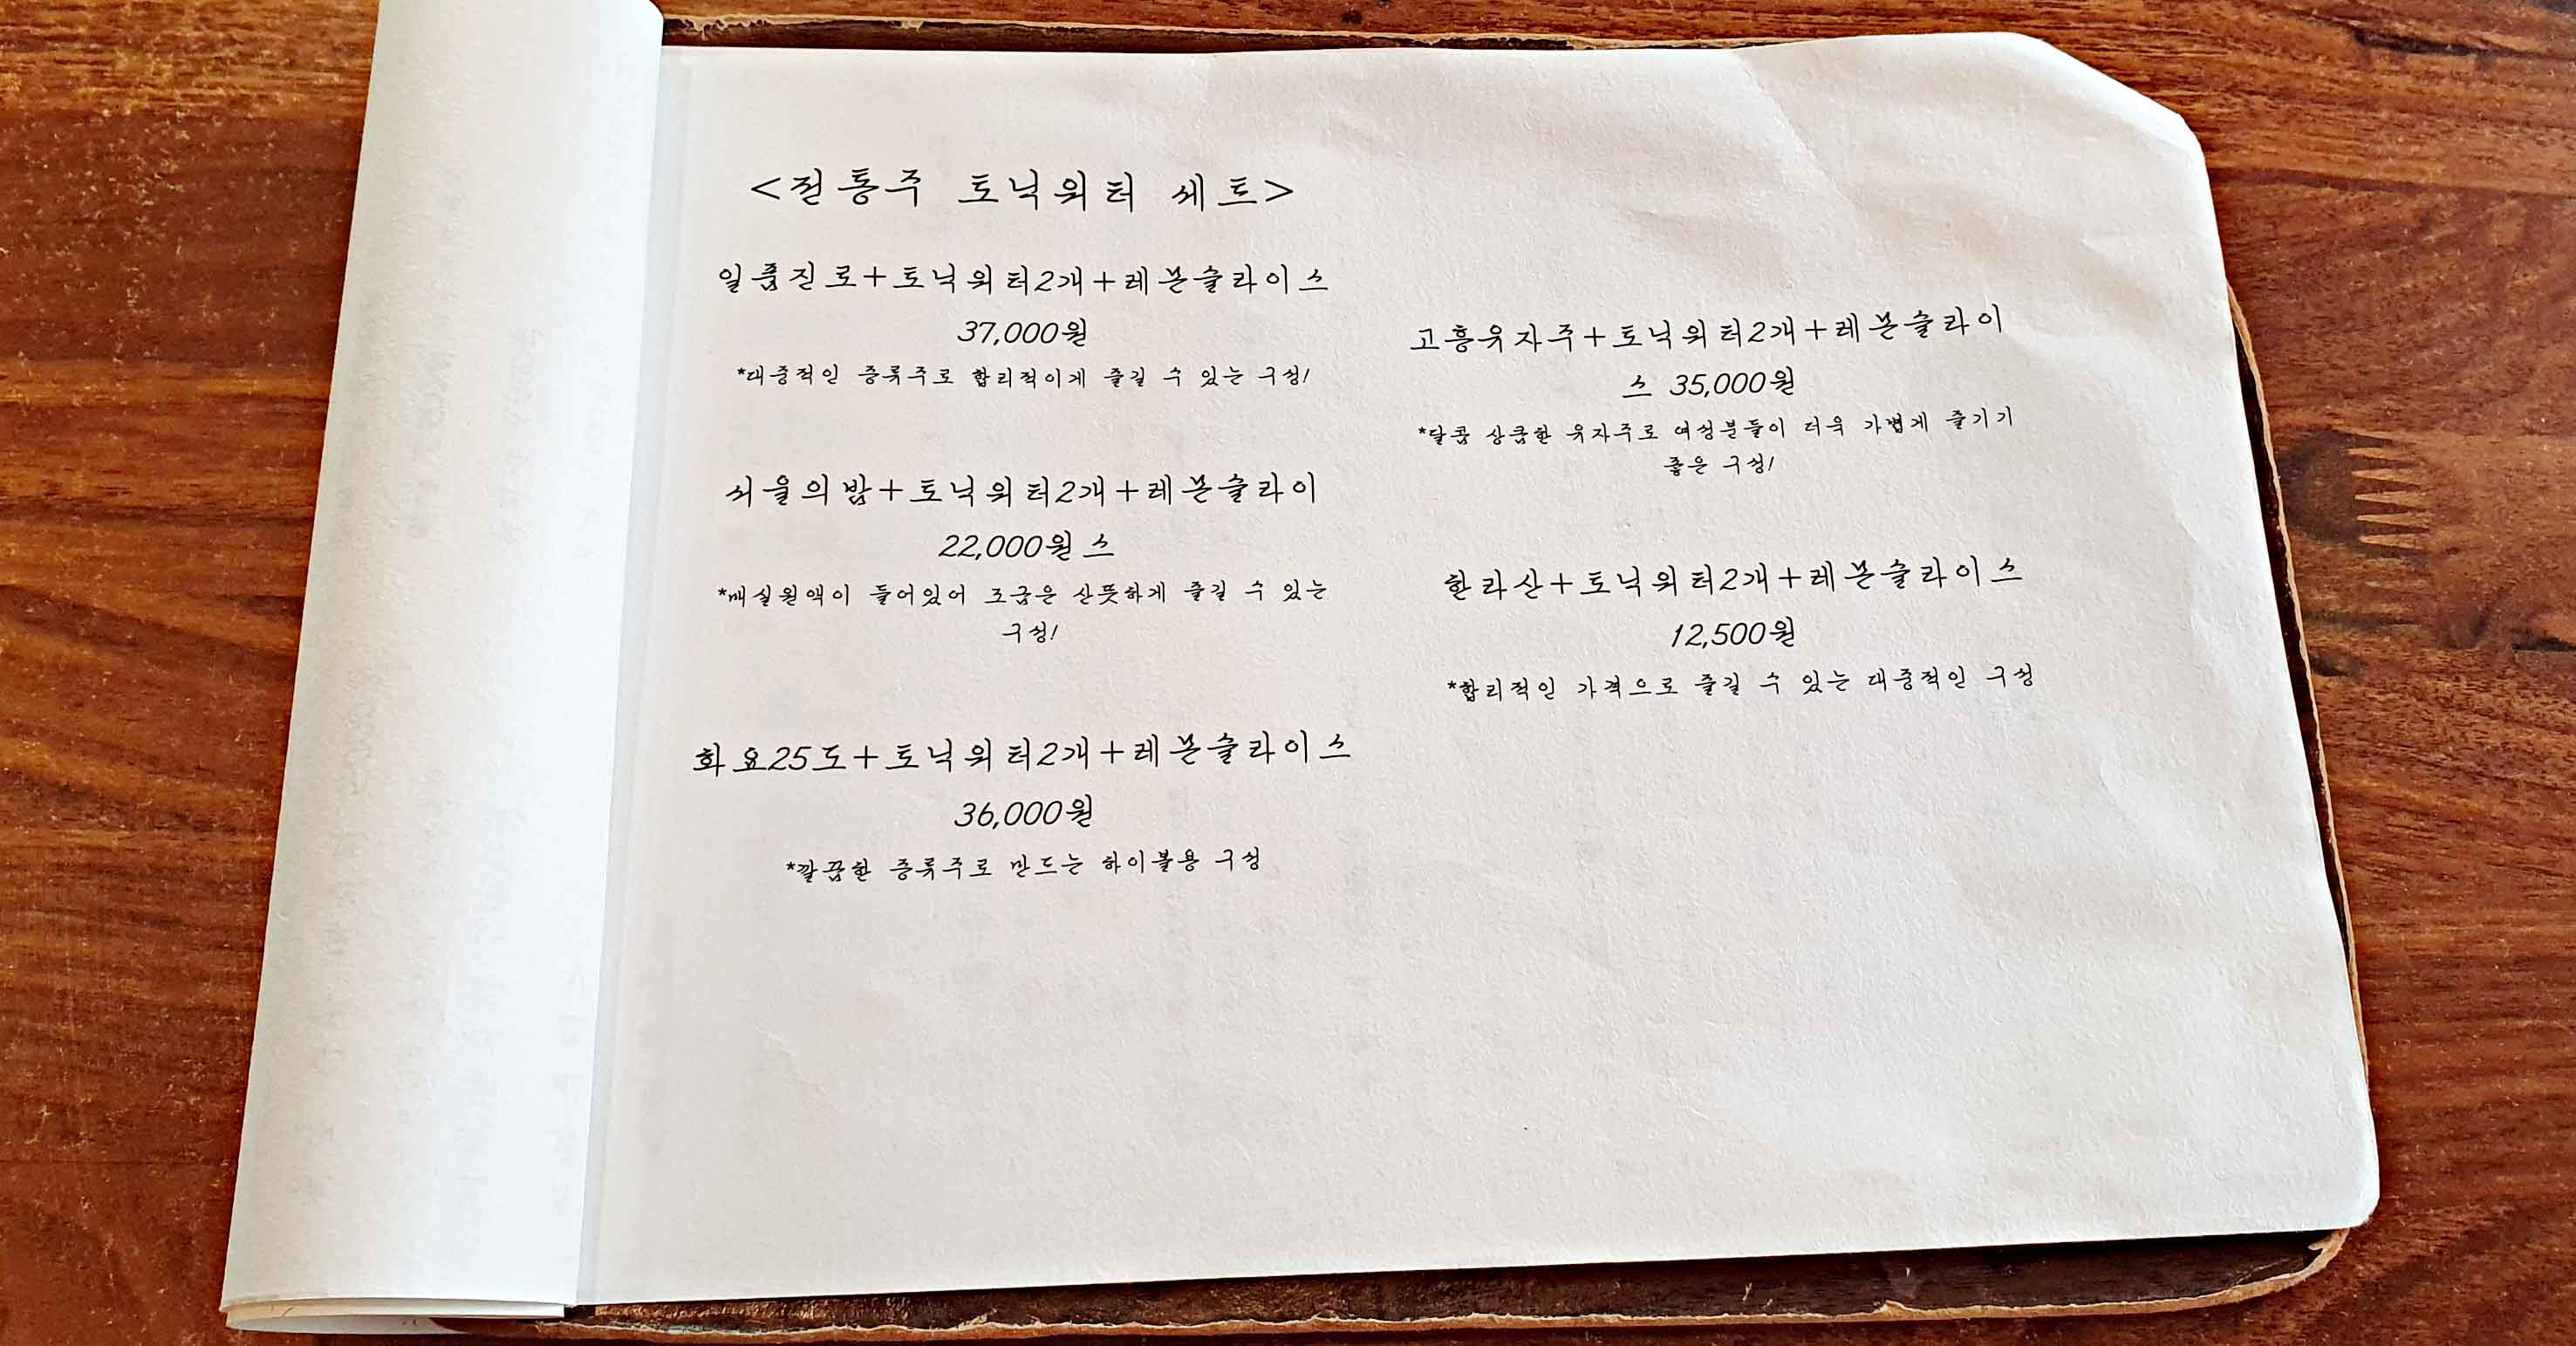 <전통주 토닉워터 세트>
일품진로+토닉워터2개+레몬슬라이스
37,000원
*대중적인 증류주로 합리적이게 즐길 수 있는 구성!
서울의밤+토닉워터2개+레몬슬라이
22,000원 스
*매실원액이 들어있어 조금은 산뜻하게 즐길 수 있는
구성!
화요25도+토닉워터2개+레몬슬라이스
36,000원
*깔끔한 증류주로 만드는 하이볼용 구성
고흥유자주+토닉워터2개+레몬슬라이
스 35,000원
*달콤 상큼한 유자주로 여성분들이 더욱 가볍게 즐기기
좋은 구성!
한라산+토닉워터2개+레몬슬라이스
12,500원
*합리적인 가격으로 즐길 수 있는 대중적인 구성